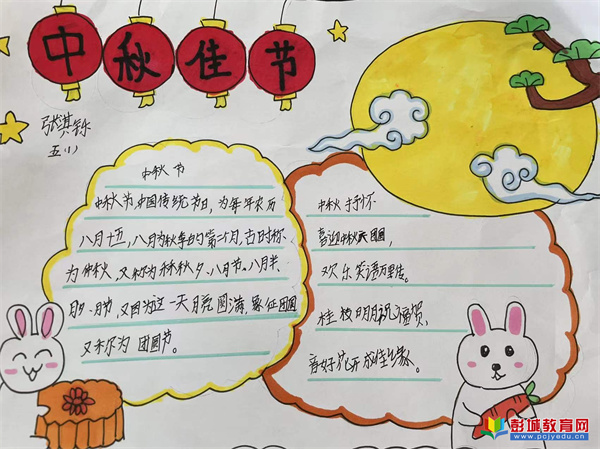 中秋佳节
张淇铄
五(1)
中秋节
中秋节中国传统节日，为每年农历
八月十五，八月为秋季的第二个月，古时称
为仲秋，又称为秋夕、八月节、八月半、
月夕、月节，又因为这一天月亮圆满，象征团圆
又称为团圆节。
中秋抒怀
喜迎中秋庆团圆，
欢乐笑语万里传。
桂枝明月祝福贺，
喜好花开成佳缘。
彭城教育网
www.pcjyedu.cn